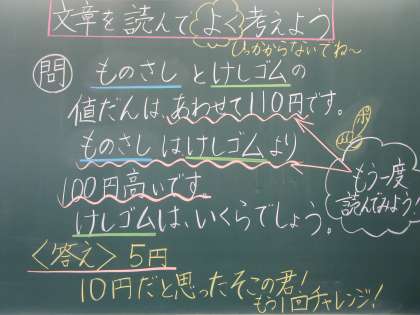 文章を読んでよく考えよう
ひっかからないでね〜
問 ものさしとけしゴムの
値だんは、あわせて110円です。
ものさしはけしゴムより
100円高いです。
けしゴムは、いくらでしょう。
ポ
もう一度
読んでみよう!
〈答え〉5円
10円だと思ったそこの君!
もう1回チャレンジ!